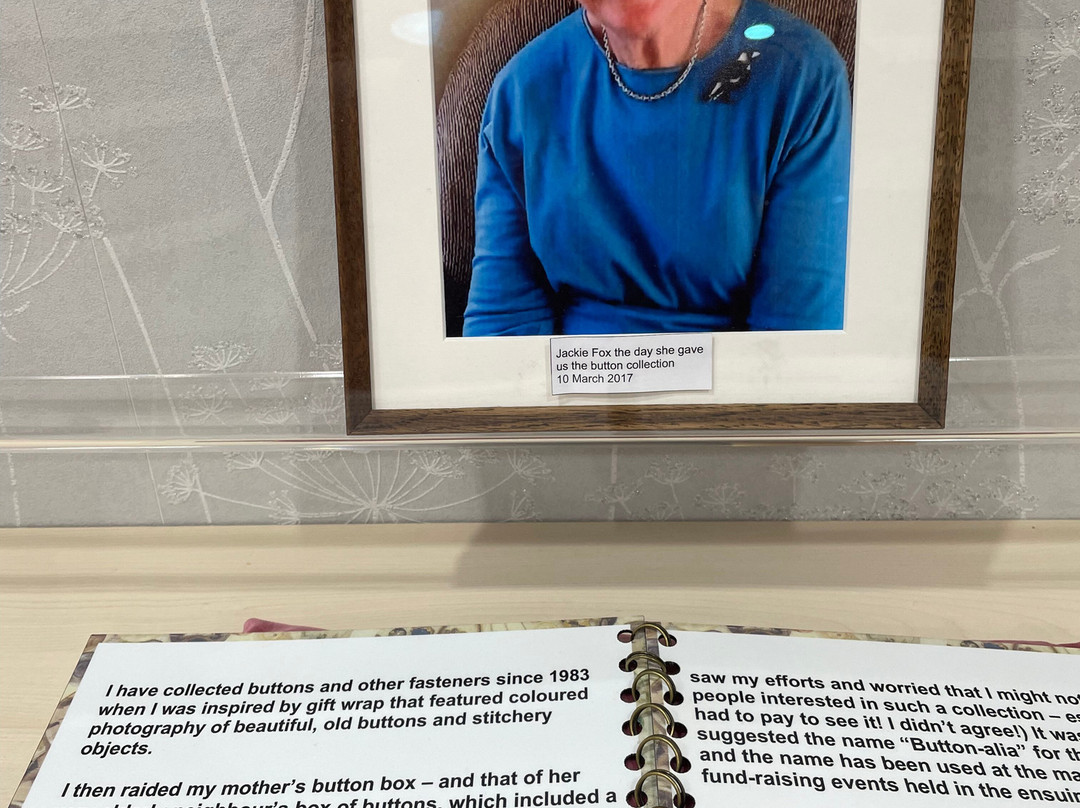 Jackie Fox the day she gave
us the button collection
10 March 2017
I have collected buttons and other fasteners since 1983
when I was inspired by gift wrap that featured coloured
photography of beautiful, old buttons and stitchery
objects.
I then raided my mother's button box – and that of her
neighbour's box of buttons, which included a
saw my efforts and worried that I might not
people interested in such a collection –
had to pay to see it! I didn't agree!) It was
suggested the name "Button-alia" for
and the name has been used at the
fund-raising events held in the